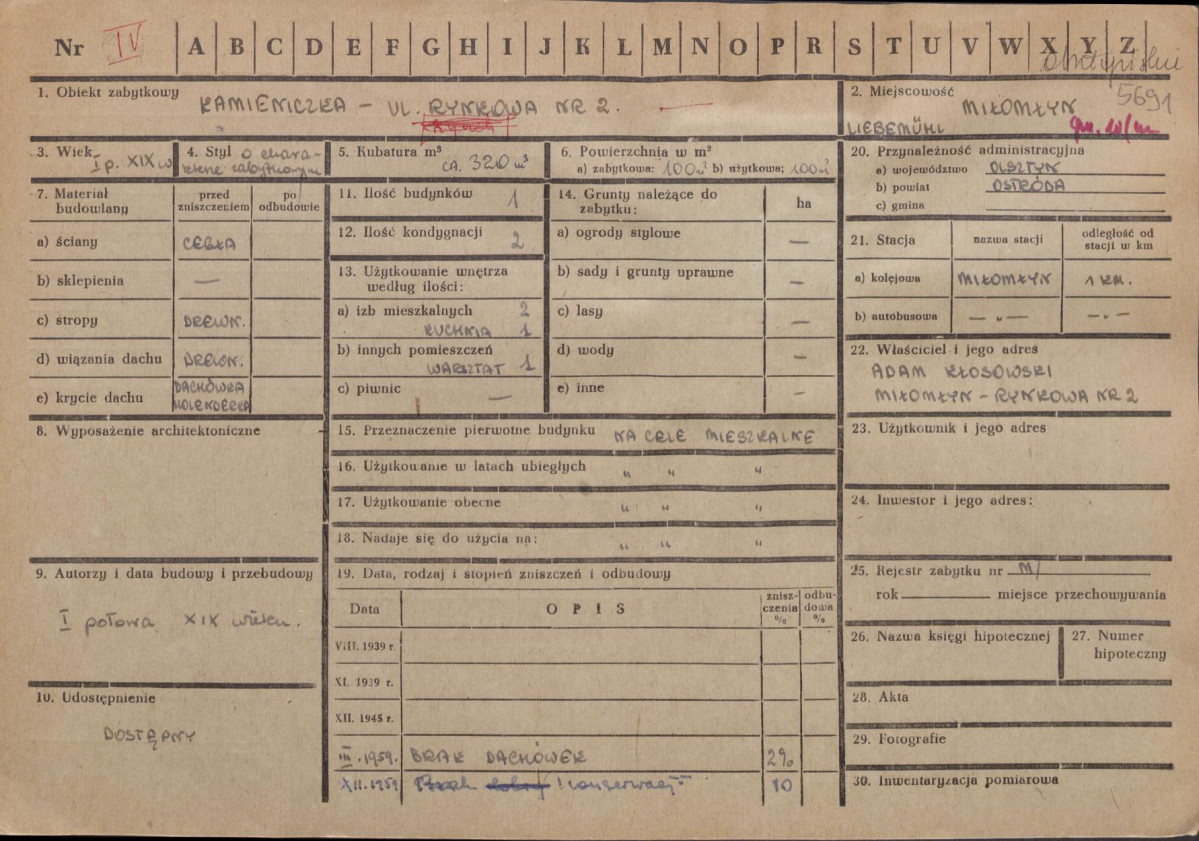 Nr IV A B C D E F G H I J K L M N O P R S T U V W X Y Z
1. Obiekt zabytkowy KAMIENICZKA – UL. RYNKOWA NR 2.
2. Miejscowość 5691
MIŁOMŁYN
LIEBEMÜHL
3. Wiek I p. XIX w
4. Styl o chara-
kterze zabytkowym
5. Kubatura m³
CA. 320 m³
6. Powierzchnia w m²
a) zabytkowa: 100 m² b) użytkowa: 100 m²
20. Przynależność administracyjna
a) województwo OLSZTYN
b) powiat OSTRÓDA
c) gmina
7. Materiał budowlany
przed zniszczeniem
po odbudowie
a) ściany CEGŁA
b) sklepienia —
c) stropy DREWN.
d) wiązania dachu DREWN.
e) krycie dachu DACHÓWKA
HOLENDERKA
11. Ilość budynków 1
12. Ilość kondygnacji 2
13. Użytkowanie wnętrza
według ilości:
a) izb mieszkalnych 2
KUCHNIA 1
b) innych pomieszczeń
WARSZTAT 1
c) piwnic —
14. Grunty należące do
zabytku: ha
a) ogrody stylowe —
b) sady i grunty uprawne —
c) lasy —
d) wody —
e) inne —
21. Stacja nazwa stacji odległość od
stacji w km
a) kolejowa MIŁOMŁYN 1 KM.
b) autobusowa — „ — — „ —
22. Właściciel i jego adres
ADAM KŁOSOWSKI
MIŁOMŁYN – RYNKOWA NR 2
8. Wyposażenie architektoniczne
15. Przeznaczenie pierwotne budynku NA CELE MIESZKALNE
16. Użytkowanie w latach ubiegłych „ „ „
17. Użytkowanie obecne „ „ „
18. Nadaje się do użycia na: „ „ „
23. Użytkownik i jego adres
24. Inwestor i jego adres:
9. Autorzy i data budowy i przebudowy
I połowa XIX wieku.
10. Udostępnienie
DOSTĘPNY
19. Data, rodzaj i stopień zniszczeń i odbudowy
Data OPIS znisz-
czenia
%
odbu-
dowa
%
VIII. 1939 r.
XI. 1939 r.
XII. 1945 r.
III. 1959. BRAK DACHÓWEK 2%
XII. 1959 Brak konserwacji 10
25. Rejestr zabytku nr M/
rok miejsce przechowywania
26. Nazwa księgi hipotecznej
27. Numer
hipoteczny
28. Akta
29. Fotografie
30. Inwentaryzacja pomiarowa